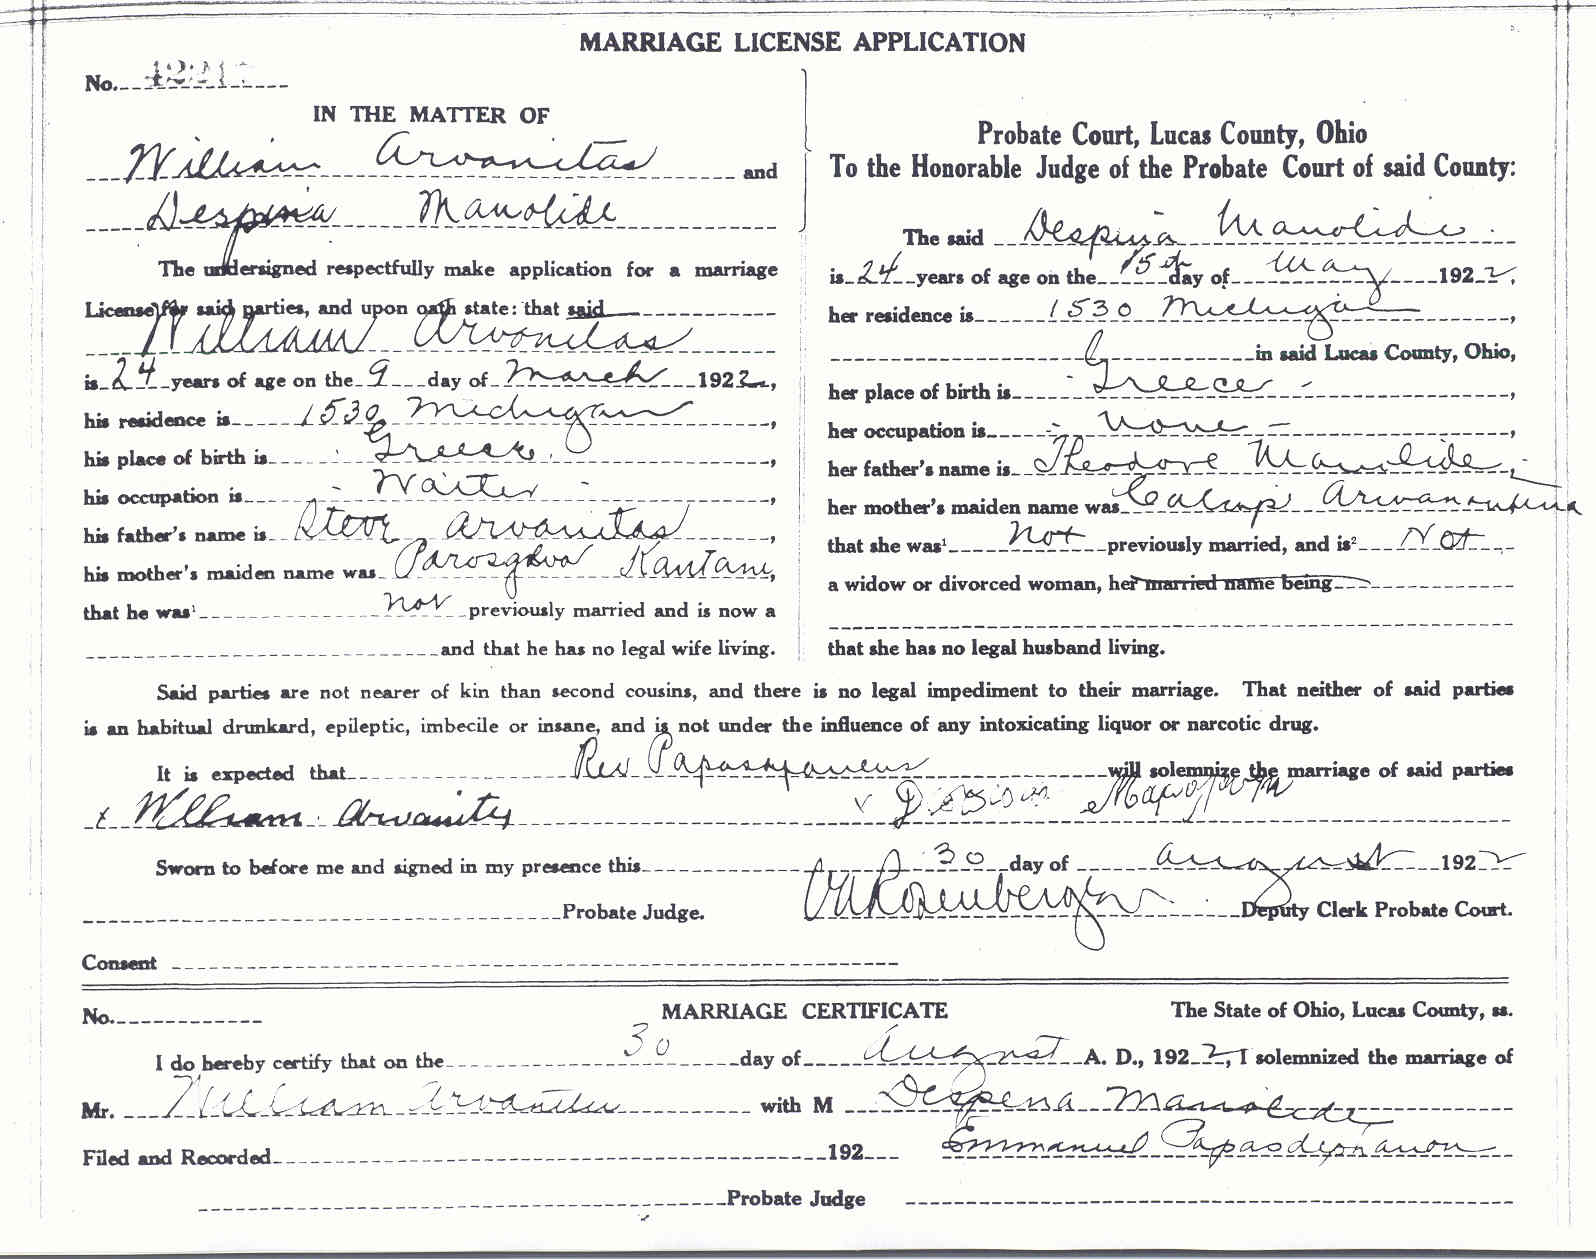 MARRIAGE LICENSE APPLICATION
No.
IN THE MATTER OF
William Arvanitas and
Despina Manolide
The undersigned respectfully make application for a marriage
License for said parties, and upon oath state: that said
William Arvanitas
is 24 years of age on the 9 day of March 1922,
his residence is 1530 Michigan,
his place of birth is Greece,
his occupation is - Waiter -,
his father's name is Steve Arvanitas,
his mother's maiden name was Kantani,
that he was¹ not previously married and is now a
and that he has no legal wife living.
Probate Court, Lucas County, Ohio
To the Honorable Judge of the Probate Court of said County:
The said Despina Manolide
is 24 years of age on the 15th day of May 1922,
her residence is 1530 Michigan,
in said Lucas County, Ohio,
her place of birth is - Greece -,
her occupation is - None -,
her father's name is Theodore Manolide,
her mother's maiden name was
that she was¹ Not previously married, and is² Not
a widow or divorced woman, her married name being
that she has no legal husband living.
Said parties are not nearer of kin than second cousins, and there is no legal impediment to their marriage. That neither of said parties
is an habitual drunkard, epileptic, imbecile or insane, and is not under the influence of any intoxicating liquor or narcotic drug.
It is expected that Rev will solemnize the marriage of said parties
x William Arvanites
Sworn to before me and signed in my presence this 30 day of August 1922
Probate Judge. Deputy Clerk Probate Court.
Consent
No. MARRIAGE CERTIFICATE The State of Ohio, Lucas County, ss.
I do hereby certify that on the 30 day of August A. D., 1922, I solemnized the marriage of
Mr. William Arvanites with M Despena Manolide
Filed and Recorded 192 Emmanuel
Probate Judge